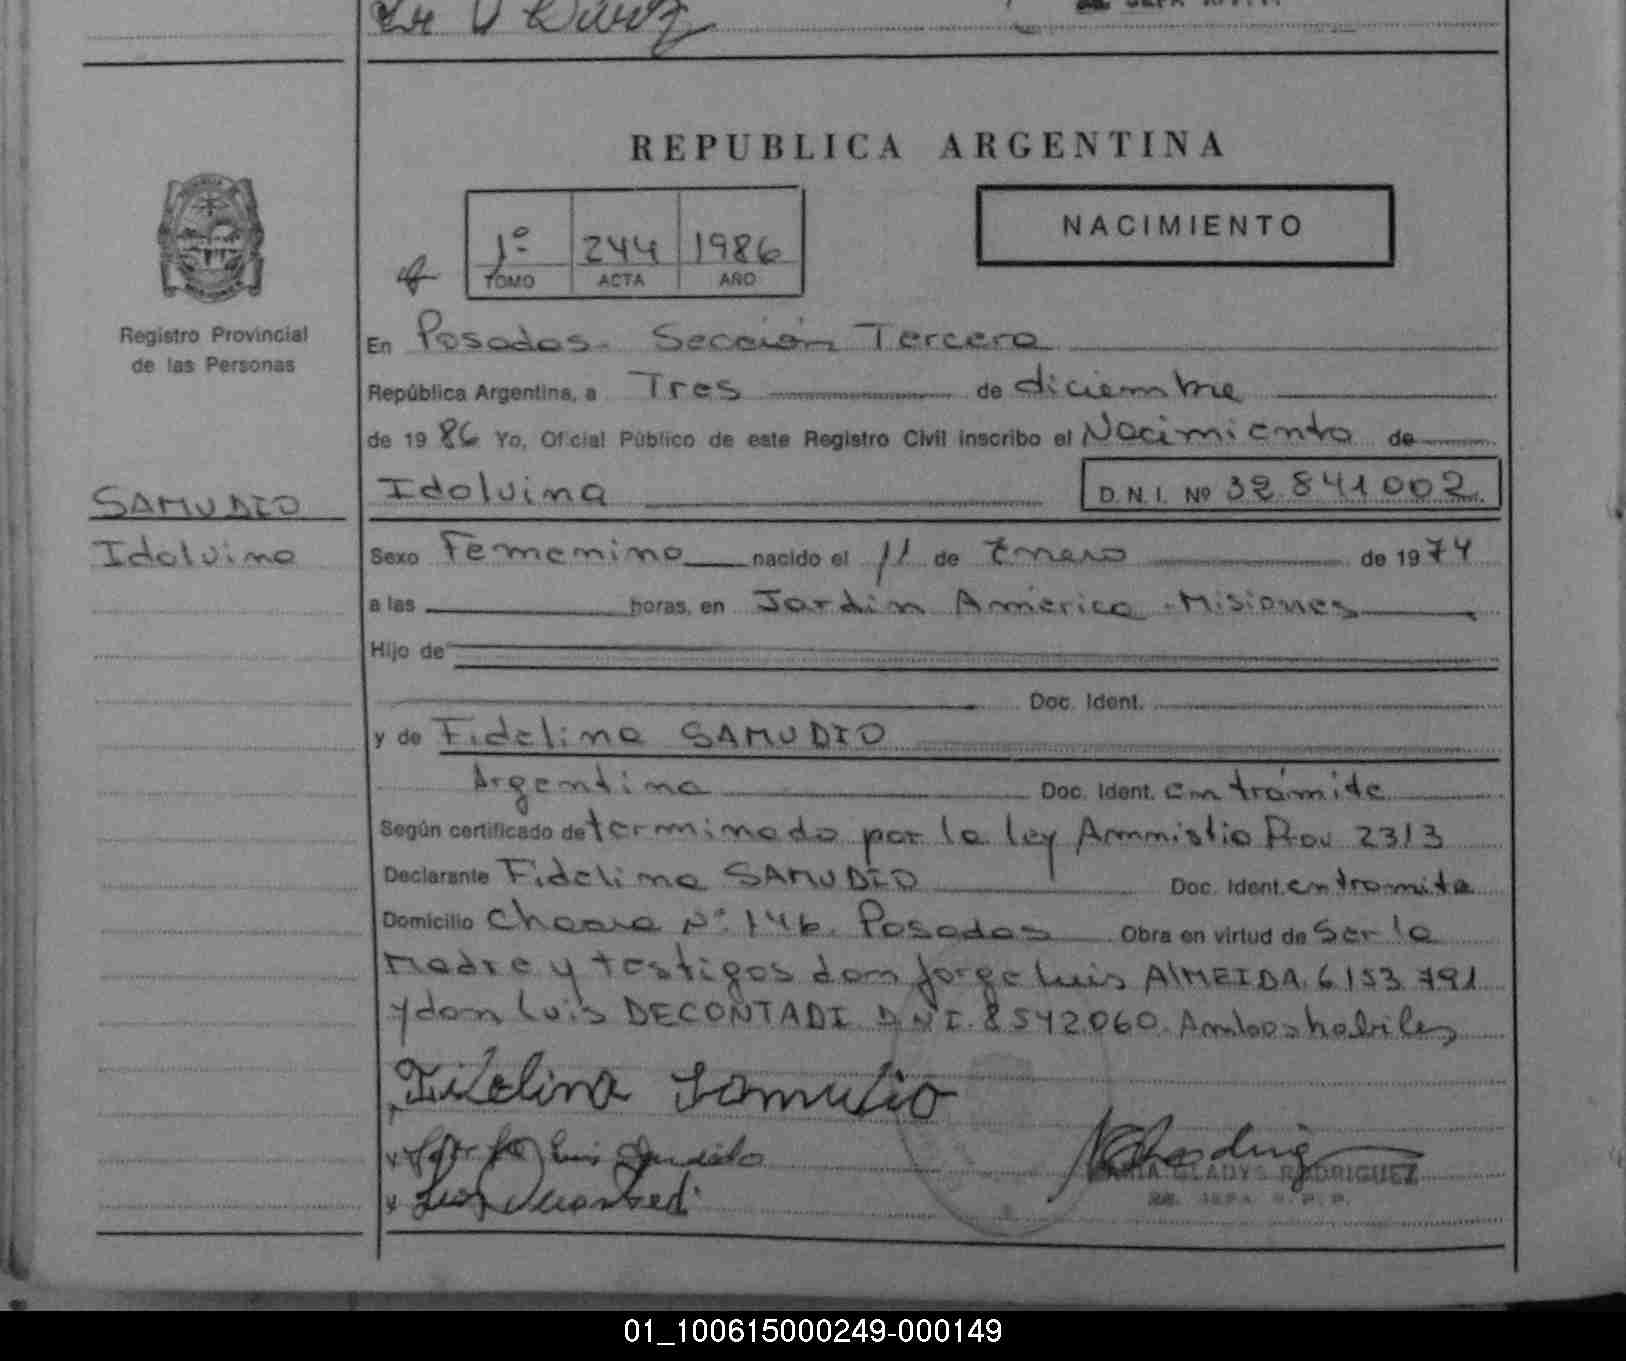 REPUBLICA ARGENTINA
1º 244 1986
TOMO ACTA AÑO
NACIMIENTO
Registro Provincial
de las Personas
En Posadas - Sección Tercera
República Argentina, a Tres de diciembre
de 1986 Yo, Oficial Público de este Registro Civil inscribo el Nacimiento de
Idolvina D.N.I. Nº 32.841.002
SAMUDIO
Idolvina
Sexo Femenino nacido el 11 de Enero de 1974
a las horas, en Jardín América - Misiones
Hijo de
Doc. Ident.
y de Fidelina SAMUDIO
Argentina Doc. Ident. en trámite
Según certificado determinado por la ley Ammistia Prov 2313
Declarante Fidelina SAMUDIO Doc. Ident. en tramite
Domicilio Chacra Nº 146. Posadas Obra en virtud de Ser la
Madre y testigos don Jorge Luis ALMEIDA. 6153.791
y don Luis DECONTADI D.N.I. 8542060. Ambos habiles
Fidelina Samudio
GLADYS RODRIGUEZ
01_100615000249-000149